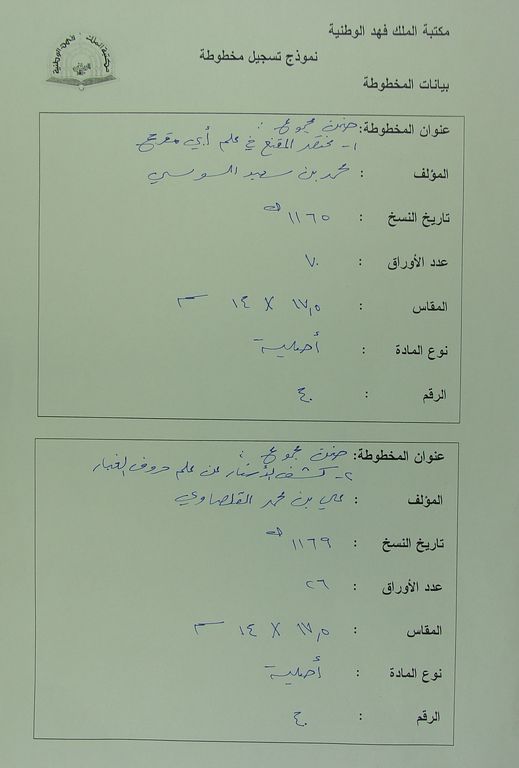 مكتبة الملك فهد الوطنية
نموذج تسجيل مخطوطة
بيانات المخطوطة
عنوان المخطوطة: ضمن مجموع :
١- مختصر المقنع في علم أبي مقرع
المؤلف : محمد بن سعيد السوسي
تاريخ النسخ : ١١٦٥ هـ
عدد الأوراق : ٧٠
المقاس : ١٧٫٥ X ١٤ سم
نوع المادة : أصلية
الرقم : ٤٠
عنوان المخطوطة: ضمن مجموع :
٢- كشف الأستار عن علم حروف الغبار
المؤلف : علي بن محمد القلصاوي
تاريخ النسخ : ١١٦٩ هـ
عدد الأوراق : ٢٦
المقاس : ١٧٫٥ X ١٤ سم
نوع المادة : أصلية
الرقم : ٤٠